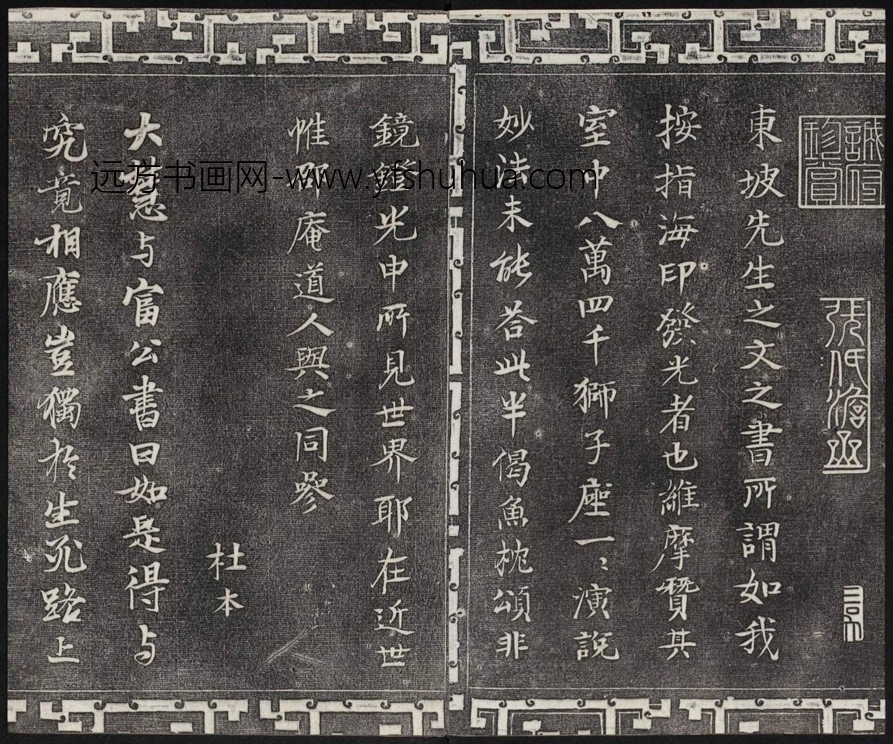 東坡先生之文之書所謂如我
按指海印發光者也維摩贊其
室中八萬四千獅子座一〻演說
妙法未能荅此半偈魚枕頌非
鏡鐙光中所見世界耶在近世
惟邵庵道人與之同參
杜本
大慧与富公書曰如是得与
究竟相應豈獨於生死路上
远方书画网-www.yfshuhua.com